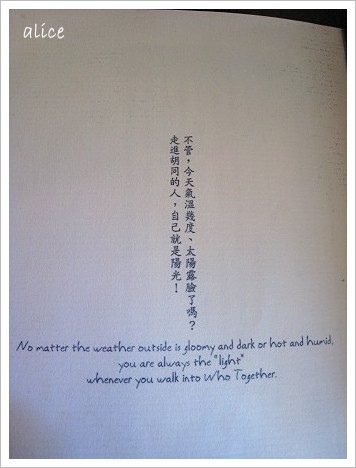 alice
不管，今天氣溫幾度、太陽露臉了嗎？
走進胡同的人，自己就是陽光！
No matter the weather outside is gloomy and dark or hot and humid,
you are always the "light"
whenever you walk into Who Together.